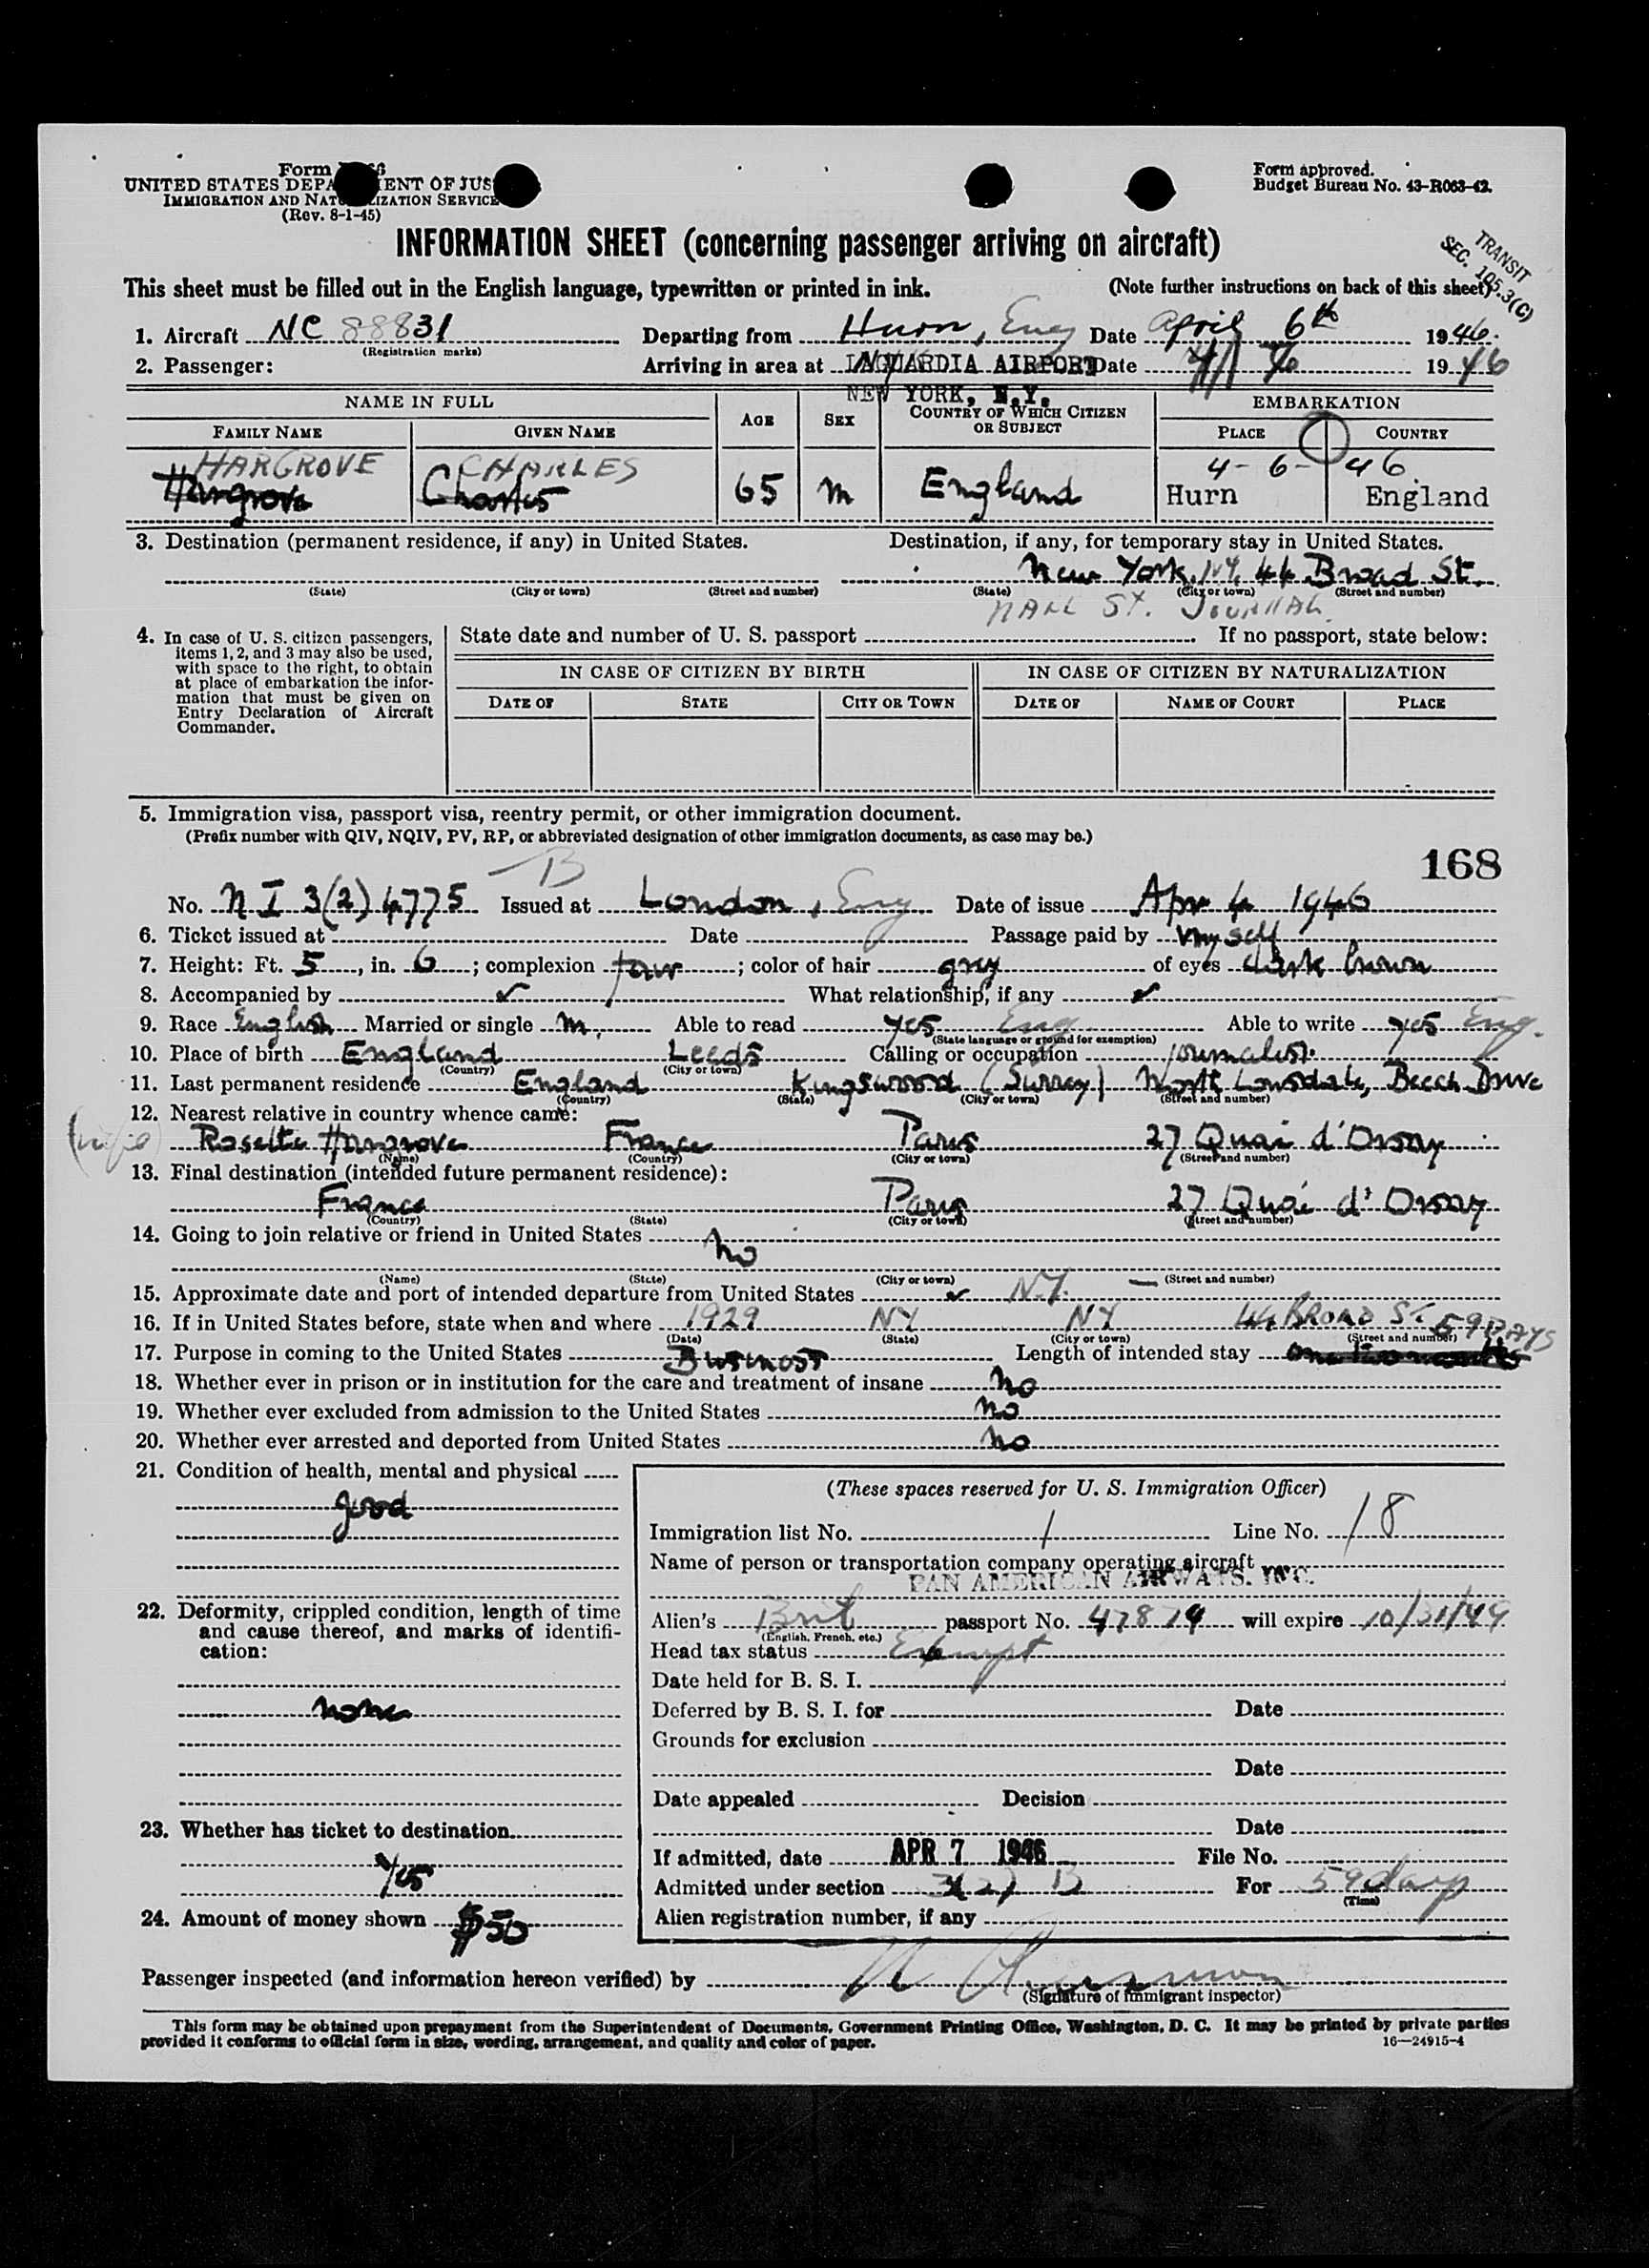 Form
UNITED STATES DEPA ENT OF JUS
IMMIGRATION AND NATU LIZATION SERVICE
(Rev. 8-1-45)
Form approved.
Budget Bureau No. 43-R063-42.
INFORMATION SHEET (concerning passenger arriving on aircraft)
TRANSIT
SEC. 105.3(C)
This sheet must be filled out in the English language, typewritten or printed in ink. (Note further instructions on back of this sheet)
1. Aircraft NC 88831 Departing from Hurn, Eng Date April 6th 1946
(Registration marks)
2. Passenger: Arriving in area at LAGUARDIA AIRPORT Date 4/ 1946
NEW YORK, N.Y.
NAME IN FULL AGE SEX COUNTRY OF WHICH CITIZEN OR SUBJECT EMBARKATION
FAMILY NAME GIVEN NAME PLACE COUNTRY
HARGROVE CHARLES 4-6-46
Hargrove Charles 65 m England Hurn England
3. Destination (permanent residence, if any) in United States. Destination, if any, for temporary stay in United States.
New York, N.Y. 44 Broad St.
(State) (City or town) (Street and number) (State) (City or town) (Street and number)
WALL ST. JOURNAL
4. In case of U. S. citizen passengers, items 1, 2, and 3 may also be used, with space to the right, to obtain at place of embarkation the information that must be given on Entry Declaration of Aircraft Commander.
State date and number of U. S. passport If no passport, state below:
IN CASE OF CITIZEN BY BIRTH IN CASE OF CITIZEN BY NATURALIZATION
DATE OF STATE CITY OR TOWN DATE OF NAME OF COURT PLACE
5. Immigration visa, passport visa, reentry permit, or other immigration document.
(Prefix number with QIV, NQIV, PV, RP, or abbreviated designation of other immigration documents, as case may be.)
168
B
No. N I 3(2) 4775 Issued at London, Eng Date of issue Apr 4 1946
6. Ticket issued at Date Passage paid by myself
7. Height: Ft. 5, in. 6; complexion fair; color of hair grey of eyes dark brown
8. Accompanied by ✓ What relationship, if any ✓
9. Race English Married or single m. Able to read yes Eng Able to write yes Eng.
(State language or ground for exemption)
10. Place of birth England Leeds Calling or occupation journalist
(Country) (City or town)
11. Last permanent residence England Kingswood (Surrey) North Lonsdale, Beech Drive
(Country) (State) (City or town) (Street and number)
12. Nearest relative in country whence came:
(wife) Rosette Hargrove France Paris 27 Quai d'Orsay
(Name) (Country) (City or town) (Street and number)
13. Final destination (intended future permanent residence):
France Paris 27 Quai d'Orsay
(Country) (State) (City or town) (Street and number)
14. Going to join relative or friend in United States No
(Name) (State) (City or town) (Street and number)
15. Approximate date and port of intended departure from United States ✓ N.Y. —
16. If in United States before, state when and where 1929 NY NY 44 BROAD ST
(Date) (State) (City or town) (Street and number)
59 DAYS
17. Purpose in coming to the United States Business Length of intended stay
18. Whether ever in prison or in institution for the care and treatment of insane no
19. Whether ever excluded from admission to the United States no
20. Whether ever arrested and deported from United States no
21. Condition of health, mental and physical
good
22. Deformity, crippled condition, length of time and cause thereof, and marks of identification:
none
23. Whether has ticket to destination
yes
24. Amount of money shown $50
(These spaces reserved for U. S. Immigration Officer)
Immigration list No. 1 Line No. 18
Name of person or transportation company operating aircraft
PAN AMERICAN AIRWAYS. INC.
Alien's Brit passport No. 47874 will expire 10/31/49
(English, French, etc.)
Head tax status Exempt
Date held for B. S. I.
Deferred by B. S. I. for Date
Grounds for exclusion
Date
Date appealed Decision
Date
If admitted, date APR 7 1946 File No.
Admitted under section 3(2) B For 59 days
(Time)
Alien registration number, if any
Passenger inspected (and information hereon verified) by
(Signature of immigrant inspector)
This form may be obtained upon prepayment from the Superintendent of Documents, Government Printing Office, Washington, D. C. It may be printed by private parties
provided it conforms to official form in size, wording, arrangement, and quality and color of paper. 16—24915-4